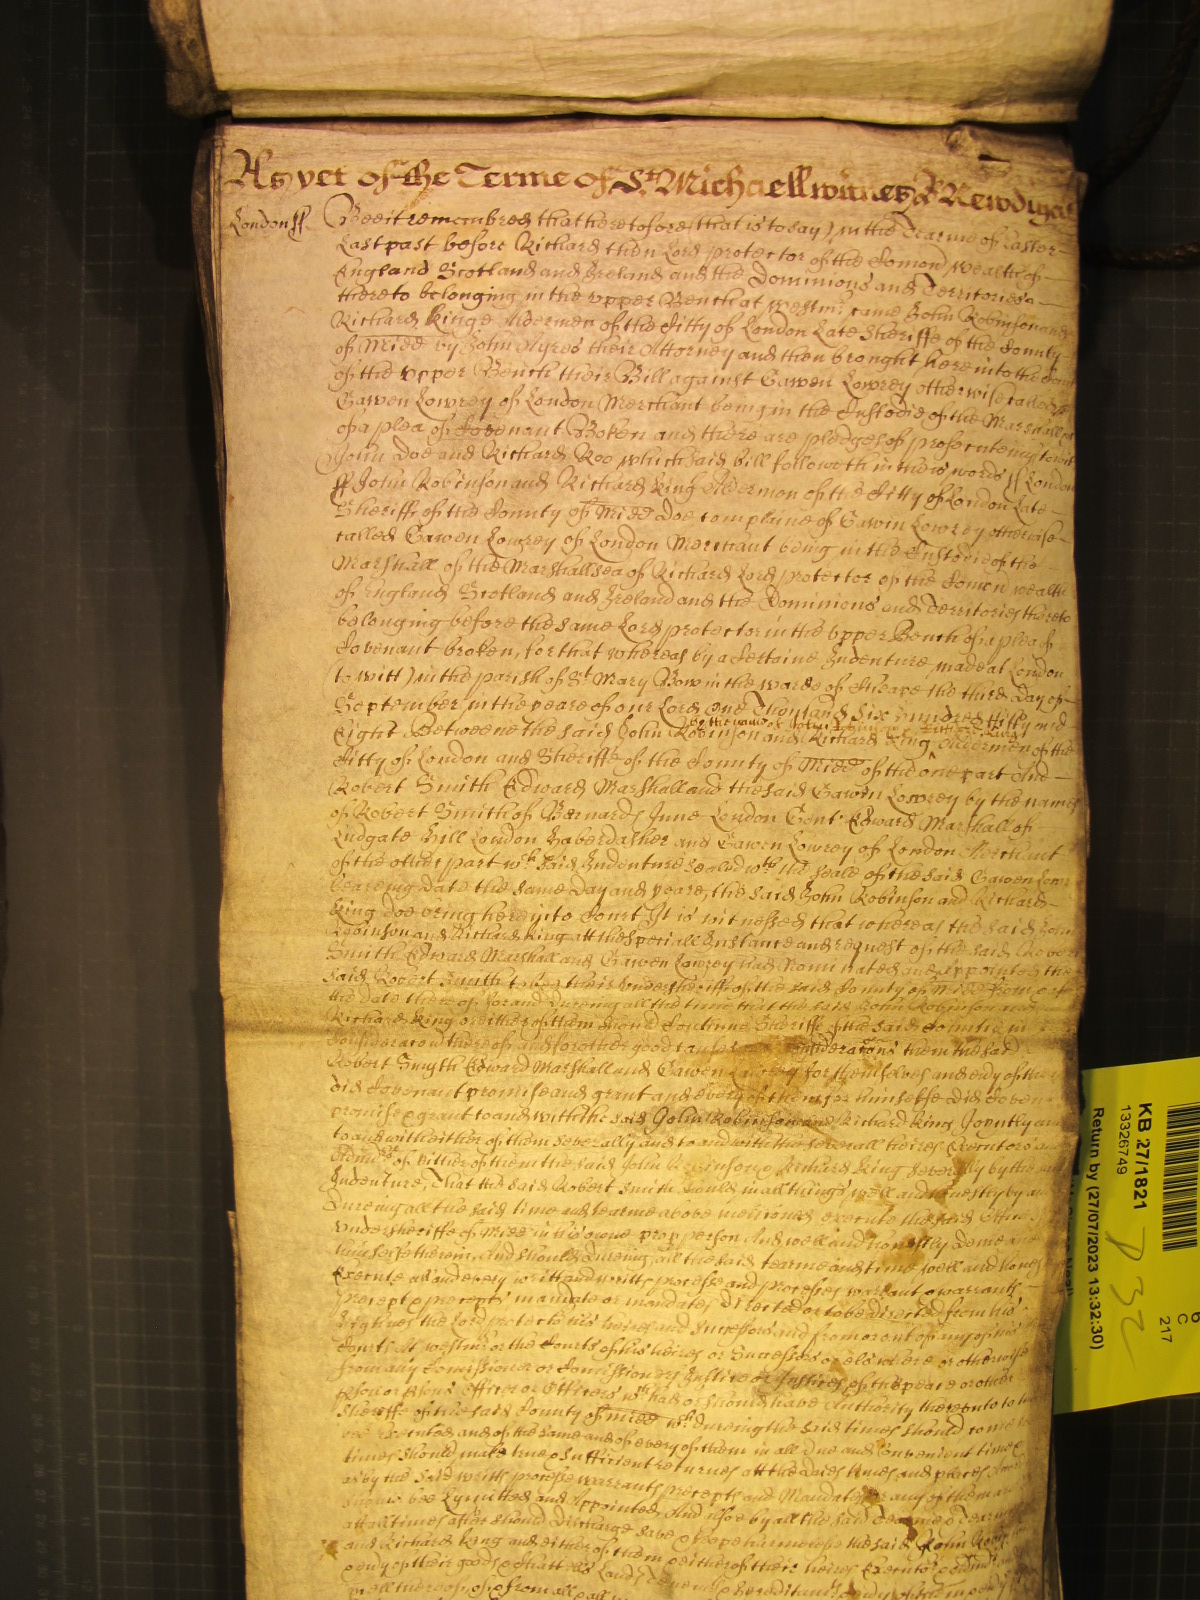 As yet of the Terme of St Michaell witnes R Newdigat
London ss Bee it remembred that heretofore (that is to say) in the Tearme of Easter
Last past before Richard then Lord protector of the Comon wealth of
England Scotland and Ireland and the Dominions and Territories
thereto belonging in the upper Bench at Westmr came John Robinson and
Richard Kinge Aldermen of the Citty of London Late Sheriffe of the County
of Midd by John Ayres their Attorney and then brought here into the Court
of the upper Bench their Bill against Gawen Lowrey otherwise called
Gawen Lowrey of London Merchant being in the Custodie of the Marshall
of a plea of Covenant Broken and there are pledges of prosecuteing towit
John Doe and Richard Roo which said bill followeth in theis words ss London
ss John Robinson and Richard King Aldermen of the Citty of London Late
Sheriffe of the County of Midd doe complaine of Gawin Lowrey otherwise
called Gawen Lowrey of London Merchant being in the Custodie of the
Marshall of the Marshallsea of Richard Lord protector of the Comon wealth
of England Scotland and Ireland and the Dominions and Territories thereto
belonging before the same Lord protector in the upper Bench of a plea of
Covenant broken, for that whereas by a Certaine Indenture made at London
(to witt) in the parish of St Mary Bow in the warde of Cheape the third day of
September in the yeare of our Lord one Thousand Six hundred fifty and
Eight Betweene the said John Robinson and Richard King by the name of John Robinson Richard King Aldermen of the
Citty of London and Sheriffe of the County of Midd of the one part And
Robert Smith Edward Marshall and the said Gawen Lowrey by the names
of Robert Smith of Barnards Inne London Gent Edward Marshall of
Ludgate Hill London Haberdasher and Gawen Lowrey of London Merchant
of the other part wch said Indenture sealed wth the seale of the said Gawen Lowrey
beareing date the same day and yeare, the said John Robinson and Richard
King doe bring here into Court It is witnessed that whereas the said John
Robinson and Richard King att the speciall Instance and request of the said Robert
Smith Edward Marshall and Gawen Lowrey had Nominated and appointed the
said Robert Smith to bee their Undersheriffe of the said County of Midd from
the date thereof for and dureing all the time that the said John Robinson and
Richard King or either of them should Continue Sheriffe of the said Countie in
Consideracon thereof and for other good causes and Consideracons them the said
Robert Smyth Edward Marshall and Gawen Lowrey for themselves and evy of them
did Covenant promise and grant and every of them for himselfe did Coven
promise & grant to and with the said John Robinson and Richard King Joyntly and
to and with either of them severally and to and with the severall heires Executors and
Admrs of either of them the said John Robinson & Richard King severally by the said
Indenture, That the said Robert Smith should in all things well and honestly by and
Dureing all the said time and tearme above mencioned execute the said Office
Undersheriffe of Midd in his owne prop person And well and honestly demeane
him selfe therein And should dureing all the said tearme and time well and honestly
Execute all and every writt and writts processe and processes warrant & warrants
precept & precepts mandate or mandates directed or to be directed from his
Highnes the Lord protector his heires and Successors and from or out of any of his
Courts at westmr or the Courts of his heires or Successors or elswhere or otherwise
from any Comissioner or Comissioners Justice or Justices of the peace or other
pson or psons officer or Officers wch hath or should have Authority thereunto to the
Sheriffe of the said County of Midd wch dureing the said times should come to
bee Executed and of the same and of every of them in all due and Convenient time
times should make true & sufficient returnes att the daies times and places
as by the said writts processe warrants precepts and Mandates or any of them
should bee Lymitted and Appointed And also by all the said tearme &
att all times after should discharge save & keepe harmeles the said John Robinson
and Richard King and either of them & either of their heires Executors
& evy of their goods & Chattells Lands tenemts & hereditamts & evy of them
well thereof of & from all
KB 27/1821
13326749
Return by (27/07/2023 13:32:30)
C
217
P 32